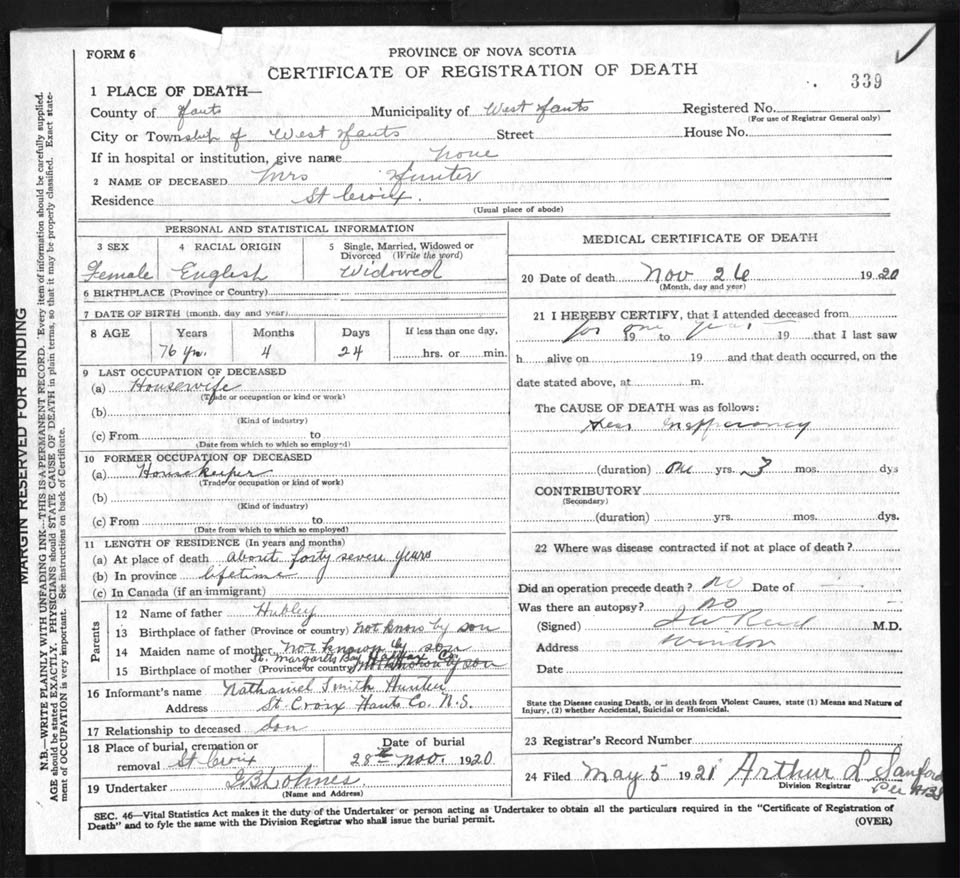 FORM 6
PROVINCE OF NOVA SCOTIA
CERTIFICATE OF REGISTRATION OF DEATH
339
1 PLACE OF DEATH—
County of Hants Municipality of West Hants Registered No.
(For use of Registrar General only)
City or Township of West Hants Street House No.
If in hospital or institution, give name none
2 NAME OF DECEASED Mrs Hunter
Residence St Croix.
(Usual place of abode)
PERSONAL AND STATISTICAL INFORMATION
3 SEX 4 RACIAL ORIGIN 5 Single, Married, Widowed or Divorced (Write the word)
Female English Widowed
6 BIRTHPLACE (Province or Country)
7 DATE OF BIRTH (month, day and year)
8 AGE Years Months Days If less than one day,
76 yrs. 4 24 hrs. or min.
9 LAST OCCUPATION OF DECEASED
(a) Housewife
(Trade or occupation or kind or work)
(b)
(Kind of industry)
(c) From to
(Date from which to which so employed)
10 FORMER OCCUPATION OF DECEASED
(a) Housekeeper
(Trade or occupation or kind of work)
(b)
(Kind of industry)
(c) From to
(Date from which to which so employed)
11 LENGTH OF RESIDENCE (In years and months)
(a) At place of death about forty seven years
(b) In province lifetime
(c) In Canada (if an immigrant)
Parents
12 Name of father Hubley
13 Birthplace of father (Province or country) not know by son
14 Maiden name of mother not known by son
St. Margarets Bay Halifax Co.
15 Birthplace of mother (Province or country) not known by son
16 Informant's name Nathaniel Smith Hunter
Address St. Croix Hants Co. N.S.
17 Relationship to deceased Son
18 Place of burial, cremation or removal St Croix Date of burial 28th nov. 1920
19 Undertaker
(Name and Address)
MEDICAL CERTIFICATE OF DEATH
20 Date of death Nov 26 1920
(Month, day and year)
21 I HEREBY CERTIFY, that I attended deceased from
for one year 19 to 19 that I last saw
h alive on 19 and that death occurred, on the
date stated above, at m.
The CAUSE OF DEATH was as follows:
(duration) one yrs. 3 mos. dys
CONTRIBUTORY
(Secondary)
(duration) yrs. mos. dys.
22 Where was disease contracted if not at place of death?
Did an operation precede death? no Date of
Was there an autopsy? no
(Signed) M.D.
Address Windsor
Date
State the Disease causing Death, or in death from Violent Causes, state (1) Means and Nature of
Injury, (2) whether Accidental, Suicidal or Homicidal.
23 Registrar's Record Number
24 Filed May 5 1921 Arthur L Sanford
Division Registrar
SEC. 46—Vital Statistics Act makes it the duty of the Undertaker or person acting as Undertaker to obtain all the particulars required in the "Certificate of Registration of
Death" and to fyle the same with the Division Registrar who shall issue the burial permit.
(OVER)
MARGIN RESERVED FOR BINDING
N.B.—WRITE PLAINLY WITH UNFADING INK—THIS IS A PERMANENT RECORD. Every item of information should be carefully supplied.
AGE should be stated EXACTLY. PHYSICIANS should STATE CAUSE OF DEATH in plain terms, so that it may be properly classified. Exact state-
ment of OCCUPATION is very important. See instructions on back of Certificate.